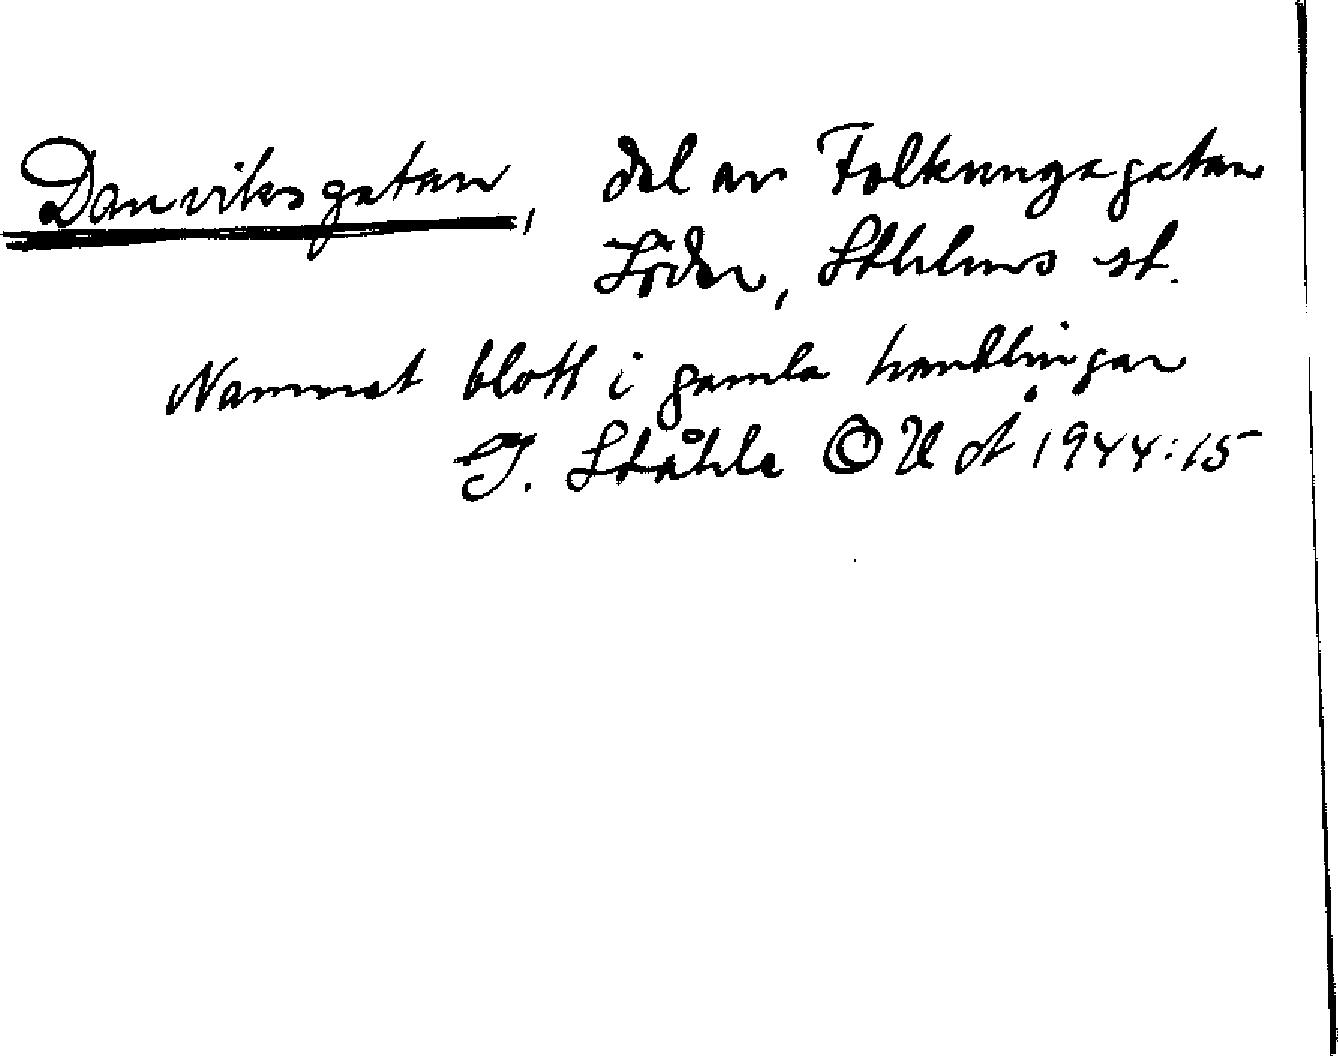 Danviksgatan, del av Folkungagatan
Söder, Sthlms st.
Namnet blott i gamla handlingar
G. Ståhle © 1944:15